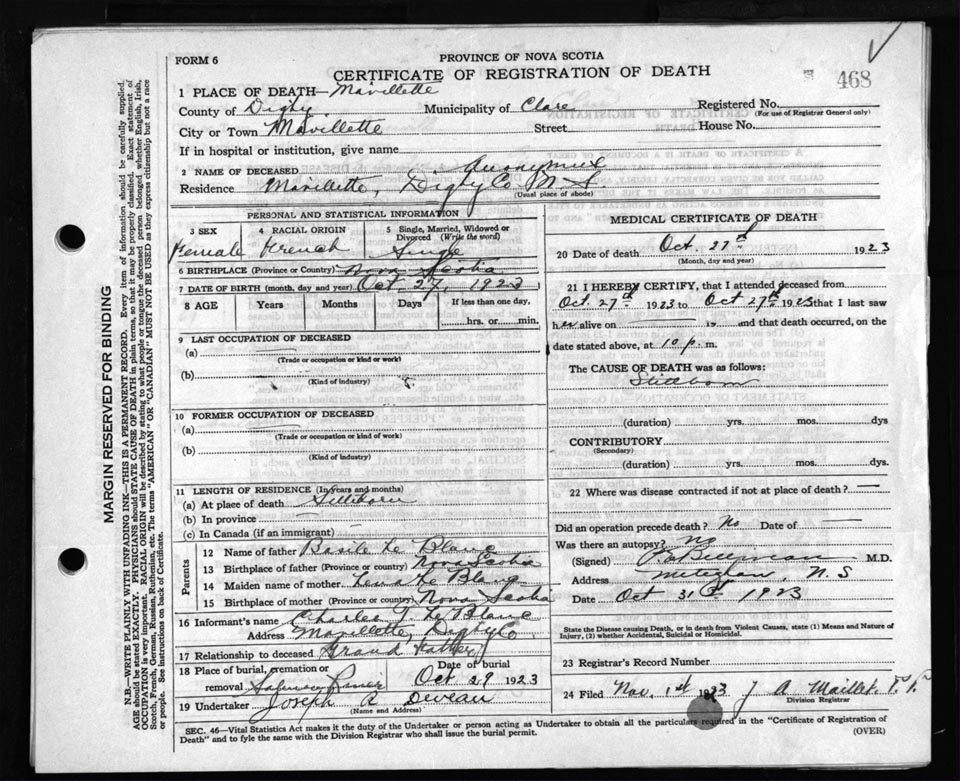 FORM 6
PROVINCE OF NOVA SCOTIA
CERTIFICATE OF REGISTRATION OF DEATH
468
1 PLACE OF DEATH—Mavillette
County of Digby Municipality of Clare Registered No.
(For use of Registrar General only)
City or Town Mavillette Street House No.
If in hospital or institution, give name
2 NAME OF DECEASED Anonymus
Residence Mavillette, Digby Co N. S.
(Usual place of abode)
PERSONAL AND STATISTICAL INFORMATION
3 SEX 4 RACIAL ORIGIN 5 Single, Married, Widowed or Divorced (Write the word)
Female French Single
6 BIRTHPLACE (Province or Country) Nova Scotia
7 DATE OF BIRTH (month, day and year) Oct. 27, 1923
8 AGE Years Months Days If less than one day,
hrs. or min.
9 LAST OCCUPATION OF DECEASED
(a)
(Trade or occupation or kind of work)
(b)
(Kind of industry)
10 FORMER OCCUPATION OF DECEASED
(a)
(Trade or occupation or kind of work)
(b)
(Kind of industry)
11 LENGTH OF RESIDENCE (In years and months)
(a) At place of death Stillborn
(b) In province
(c) In Canada (if an immigrant)
Parents
12 Name of father Basile Le Blanc
13 Birthplace of father (Province or country) Nova Scotia
14 Maiden name of mother Lena Le Blanc
15 Birthplace of mother (Province or country) Nova Scotia
16 Informant's name Charles J. Le Blanc
Address Mavillette, Digby Co.
17 Relationship to deceased Grand father
18 Place of burial, cremation or removal Salmon River Date of burial Oct 29 1923
19 Undertaker Joseph A Deveau
(Name and Address)
MEDICAL CERTIFICATE OF DEATH
20 Date of death Oct. 27th 1923
(Month, day and year)
21 I HEREBY CERTIFY, that I attended deceased from
Oct. 27th 1923 to Oct 27th 1923 that I last saw
her alive on 19 and that death occurred, on the
date stated above, at 10 p. m.
The CAUSE OF DEATH was as follows:
Stillborn
(duration) yrs. mos. dys
CONTRIBUTORY
(Secondary)
(duration) yrs. mos. dys.
22 Where was disease contracted if not at place of death?
Did an operation precede death? No Date of
Was there an autopsy? No
(Signed) M.D.
Address Meteghan, N. S
Date Oct 31st 1923
State the Disease causing Death, or in death from Violent Causes, state (1) Means and Nature of Injury, (2) whether Accidental, Suicidal or Homicidal.
23 Registrar's Record Number
24 Filed Nov. 1st 1923 J A Maillet
Division Registrar
SEC. 46—Vital Statistics Act makes it the duty of the Undertaker or person acting as Undertaker to obtain all the particulars required in the "Certificate of Registration of
Death" and to fyle the same with the Division Registrar who shall issue the burial permit.
(OVER)
MARGIN RESERVED FOR BINDING
N.B.—WRITE PLAINLY WITH UNFADING INK—THIS IS A PERMANENT RECORD. Every item of information should be carefully supplied.
AGE should be stated EXACTLY. PHYSICIANS should STATE CAUSE OF DEATH in plain terms, so that it may be properly classified. Exact statement of
OCCUPATION is very important. RACIAL ORIGIN will be described by stating to what people or tongue the deceased person belonged whether English, Irish,
Scotch, French, German, Russian, Ruthenian, etc. The terms "AMERICAN" or "CANADIAN" MUST NOT BE USED as they express citizenship but not a race
or people. See instructions on back of Certificate.